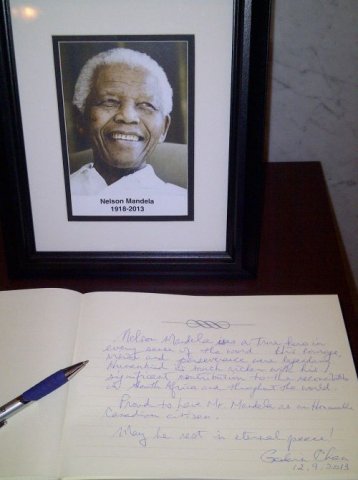 Nelson Mandela
1918-2013
Nelson Mandela was a true hero in
every sense of the word. His courage,
and perseverance were legendary.
Humankind is much richer with his
significant contribution to the reconciliation
in South Africa and throughout the world.
Proud to have Mr. Mandela as an Honorary
Canadian citizen.
May he rest in eternal peace!
Chan
12.9.2013